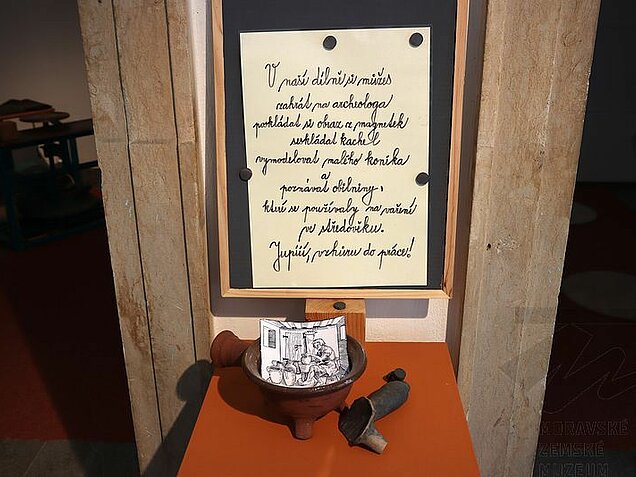 V naší dílně si můžeš
zahrát na archeologa
poskládat si obraz z magnetek
seskládat kachel
vymodelovat malého koníka
a
poznávat obilniny,
které se používaly na vaření
ve středověku.
Jupííí, vzhůru do práce!
MORAVSKÉ
ZEMSKÉ
MUZEUM